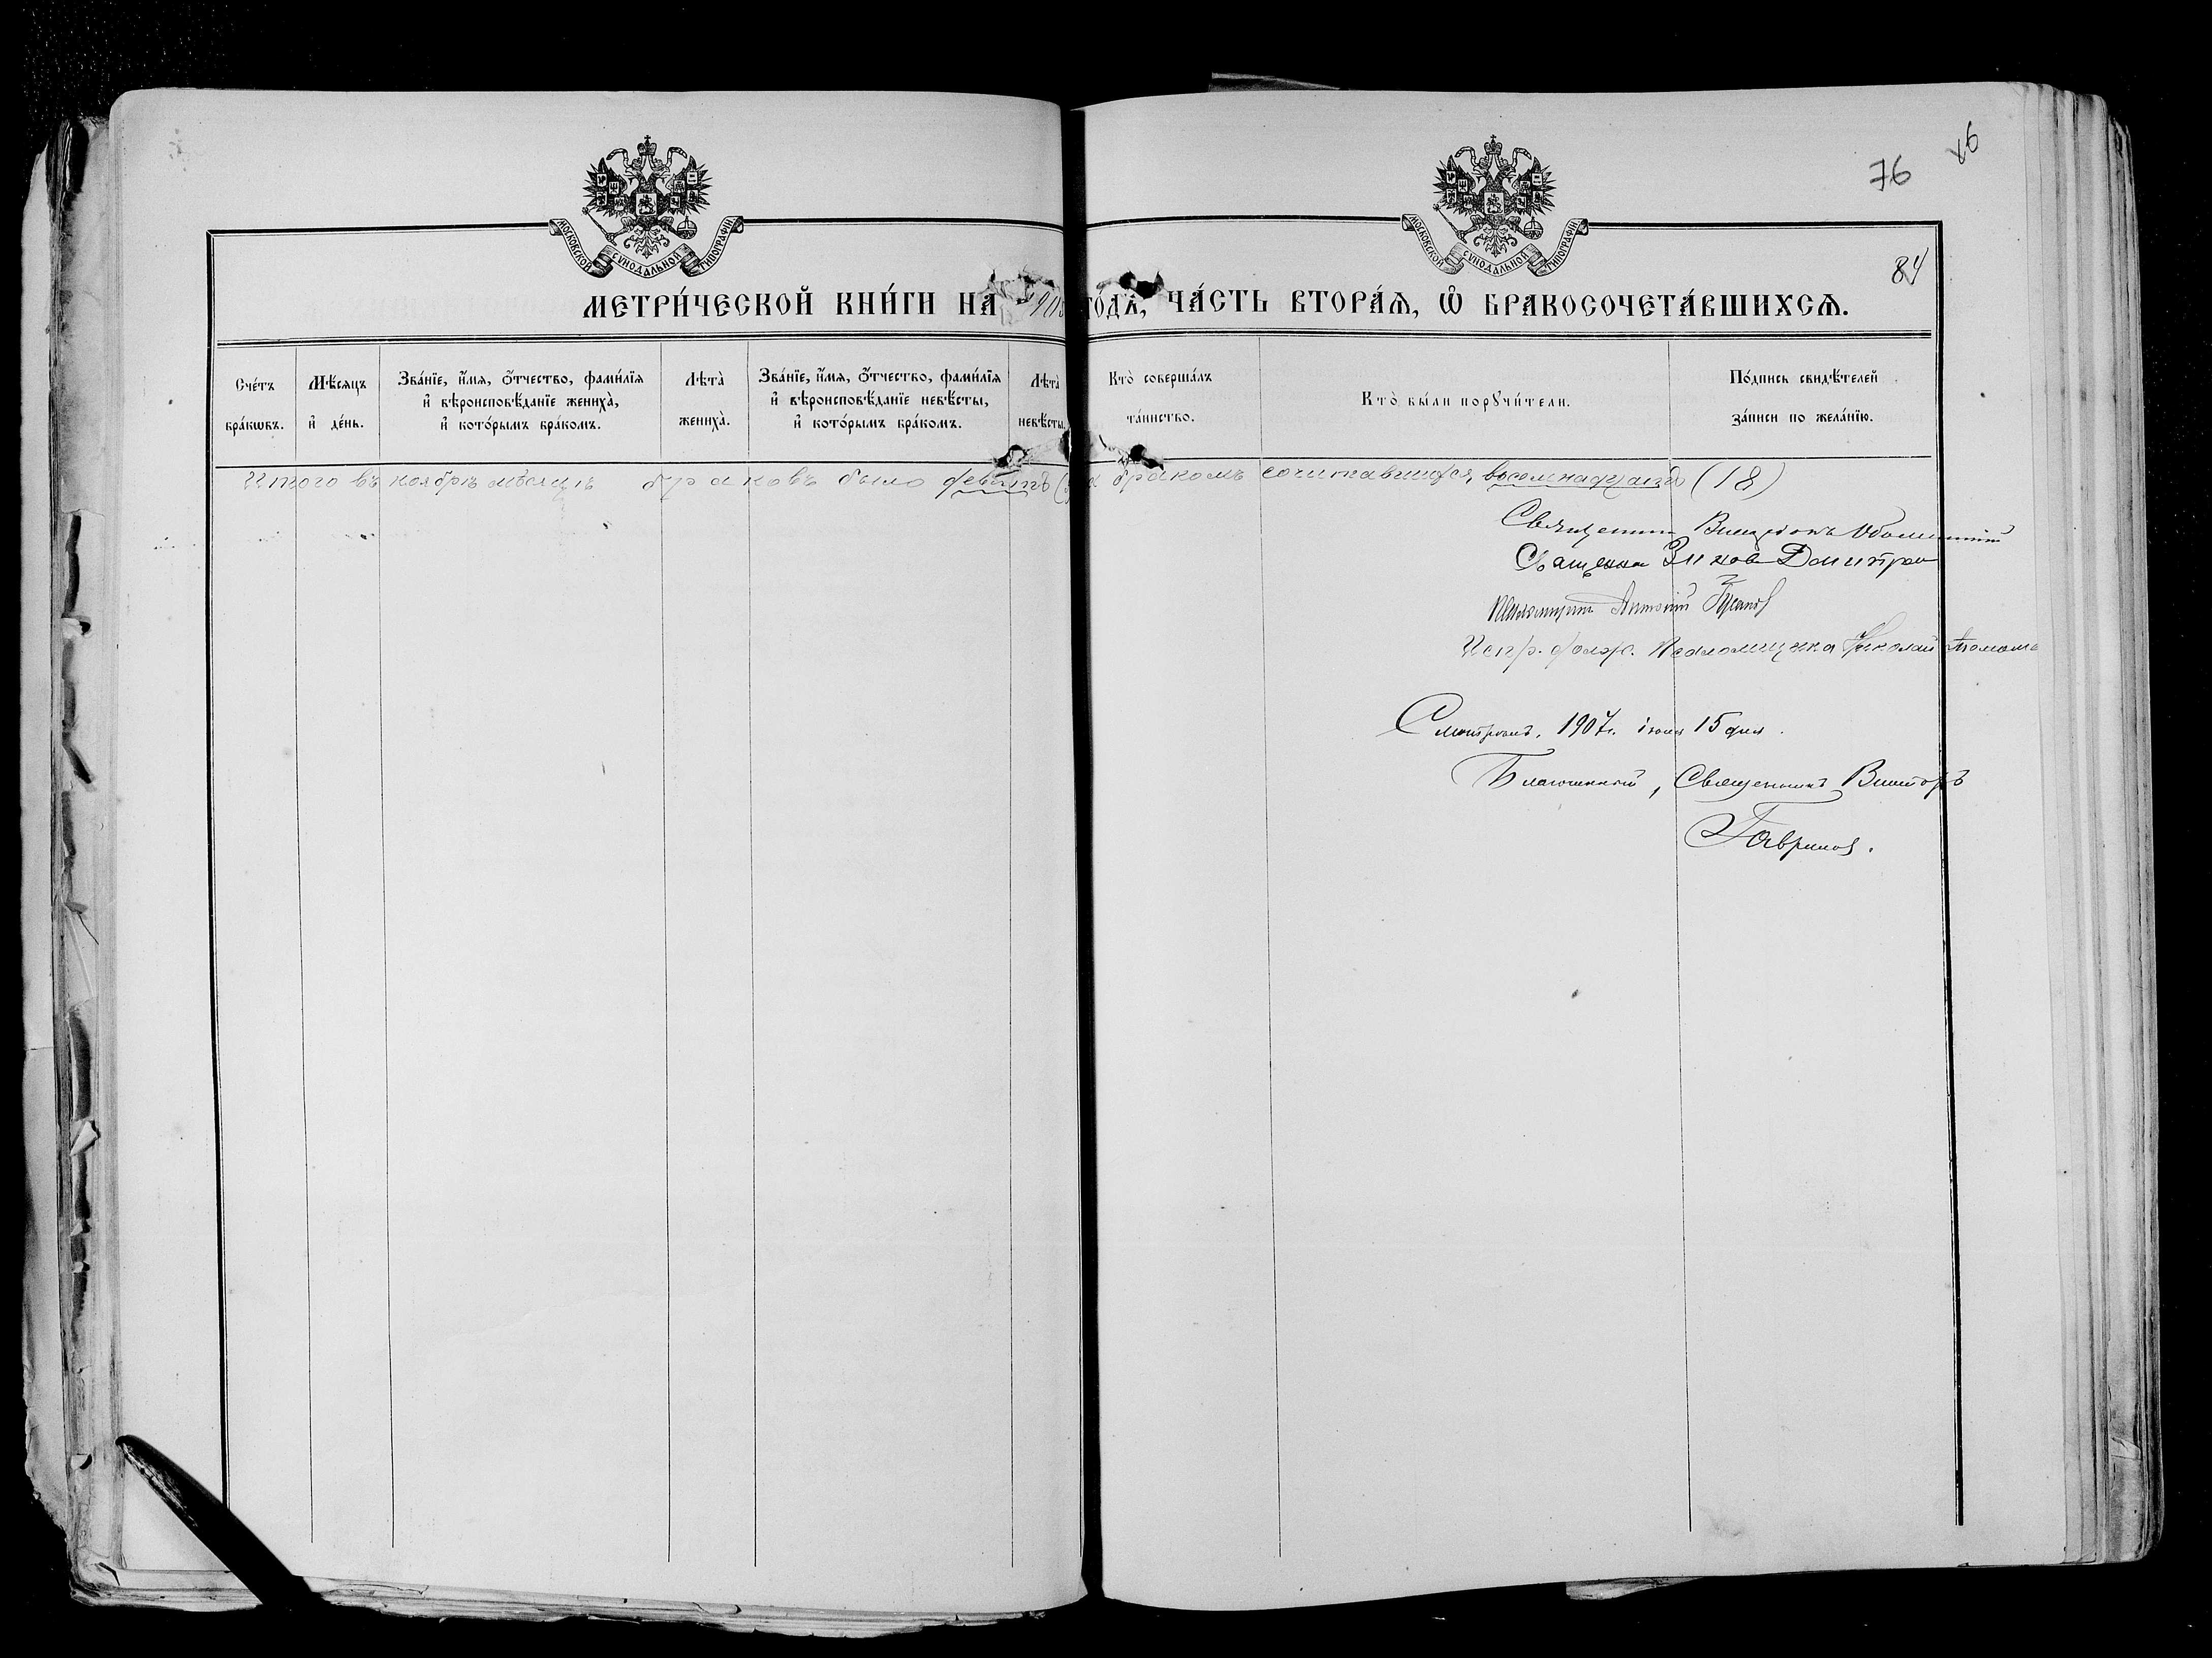 76
84
МОСКОВСКОЙ СѴНОДАЛЬНОЙ ТИПОГРАФІИ
МОСКОВСКОЙ СѴНОДАЛЬНОЙ ТИПОГРАФІИ
МЕТРИ́ЧЕСКОЙ КНИ́ГИ НА го́дъ, ЧА́СТЬ ВТОРА́Ѧ, Ѡ҆ БРАКОСОЧЕТА́ВШИХСѦ.
Сче́тъ бра́кѡвъ.
Мѣ́сяцъ и҆ де́нь.
Зва́нїе, и҆́мя, ѻ҆́тчество, фами́лїя и҆ вѣроисповѣ́данїе жениха̀, и҆ кото́рымъ бра́комъ.
Лѣта̀ жениха̀.
Зва́нїе, и҆́мя, ѻ҆́тчество, фами́лїя и҆ вѣроисповѣ́данїе невѣ́сты, и҆ кото́рымъ бра́комъ.
Лѣта̀ невѣ́сты.
Кто̀ соверша́лъ та́инство.
Кто̀ бы́ли порꙋчи́тели.
По́дпись свидѣ́телей за́писи по жела́нїю.
Итого въ ноябрѣ мѣсяцѣ браковъ было девять бракомъ сочитавшихся, восемнадцать (18)
Священникъ
Священникъ Зиновъ Дмитр
Псаломщикъ Антоній
Испр. долж. Псаломщика Николай
Смотрѣлъ. 1907 г. іюня 15 дня.
Благочинный, Священникъ Викторъ
Гавриловъ.